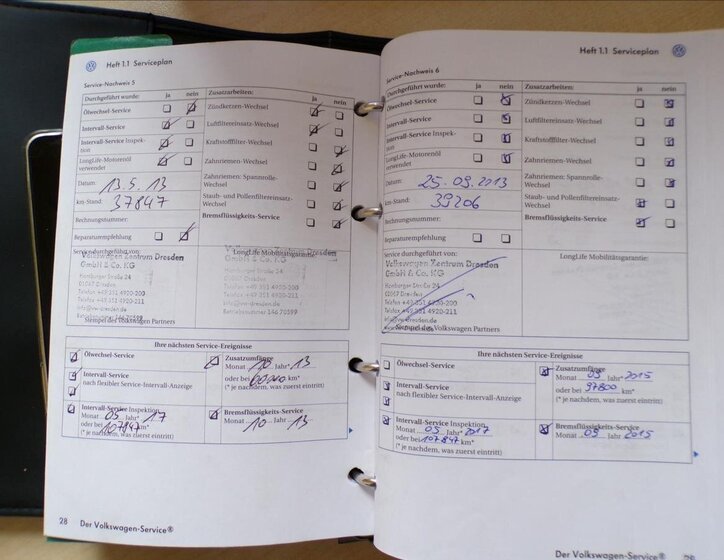 Heft 1.1 Serviceplan
Service-Nachweis 5
Durchgeführt wurde: ja nein
Ölwechsel-Service
Intervall-Service
Intervall-Service Inspek-
tion
LongLife-Motorenöl
verwendet
Datum: 13.5.13
km-Stand: 37847
Rechnungsnummer:
Reparaturempfehlung
Zusatzarbeiten: ja nein
Zündkerzen-Wechsel
Luftfiltereinsatz-Wechsel
Kraftstofffilter-Wechsel
Zahnriemen-Wechsel
Zahnriemen: Spannrolle-
Wechsel
Staub- und Pollenfiltereinsatz-
Wechsel
Bremsflüssigkeits-Service
Service durchgeführt von:
Volkswagen Zentrum Dresden
GmbH & Co. KG
Hamburger Straße 24
01067 Dresden
Telefon +49 351 4920-200
Telefax +49 351 4920-211
info@vw-dresden.de
Betriebsnummer 146 70599
Stempel des Volkswagen Partners
LongLife Mobilitätsgarantie:
Volkswagen Zentrum Dresden
GmbH & Co. KG
Hamburger Straße 24
01067 Dresden
Telefon +49 351 4920-200
Telefax +49 351 4920-211
info@vw-dresden.de
Betriebsnummer 146 70599
Ihre nächsten Service-Ereignisse
Ölwechsel-Service
Intervall-Service
nach flexibler Service-Intervall-Anzeige
Intervall-Service Inspektion
Monat 05 Jahr* 17
oder bei 107847 km*
(* je nachdem, was zuerst eintritt)
Zusatzumfänge
Monat 10 Jahr* 13
oder bei km*
(* je nachdem, was zuerst eintritt)
Bremsflüssigkeits-Service
Monat 10 13
28 Der Volkswagen-Service®
Heft 1.1 Serviceplan
Service-Nachweis 6
Durchgeführt wurde: ja nein
Ölwechsel-Service
Intervall-Service
Intervall-Service Inspek-
tion
LongLife-Motorenöl
verwendet
Datum: 25.09.2013
km-Stand: 39206
Rechnungsnummer:
Reparaturempfehlung
Zusatzarbeiten: ja nein
Zündkerzen-Wechsel
Luftfiltereinsatz-Wechsel
Kraftstofffilter-Wechsel
Zahnriemen-Wechsel
Zahnriemen: Spannrolle-
Wechsel
Staub- und Pollenfiltereinsatz-
Wechsel
Bremsflüssigkeits-Service
Service durchgeführt von:
Volkswagen Zentrum Dresden
GmbH & Co. KG
Hamburger Str. 24
01067 Dresden
Telefon +49 351 4920-200
Telefax +49 351 4920-211
info@vw-dresden.de
Stempel des Volkswagen Partners
LongLife Mobilitätsgarantie:
Ihre nächsten Service-Ereignisse
Ölwechsel-Service
Intervall-Service
nach flexibler Service-Intervall-Anzeige
Intervall-Service Inspektion
Monat 05 Jahr* 2017
oder bei 107847 km*
(* je nachdem, was zuerst eintritt)
Zusatzumfänge
Monat 09 Jahr* 2015
oder bei 97800 km*
(* je nachdem, was zuerst eintritt)
Bremsflüssigkeits-Service
Monat 09 2015
Der Volkswagen-Service®